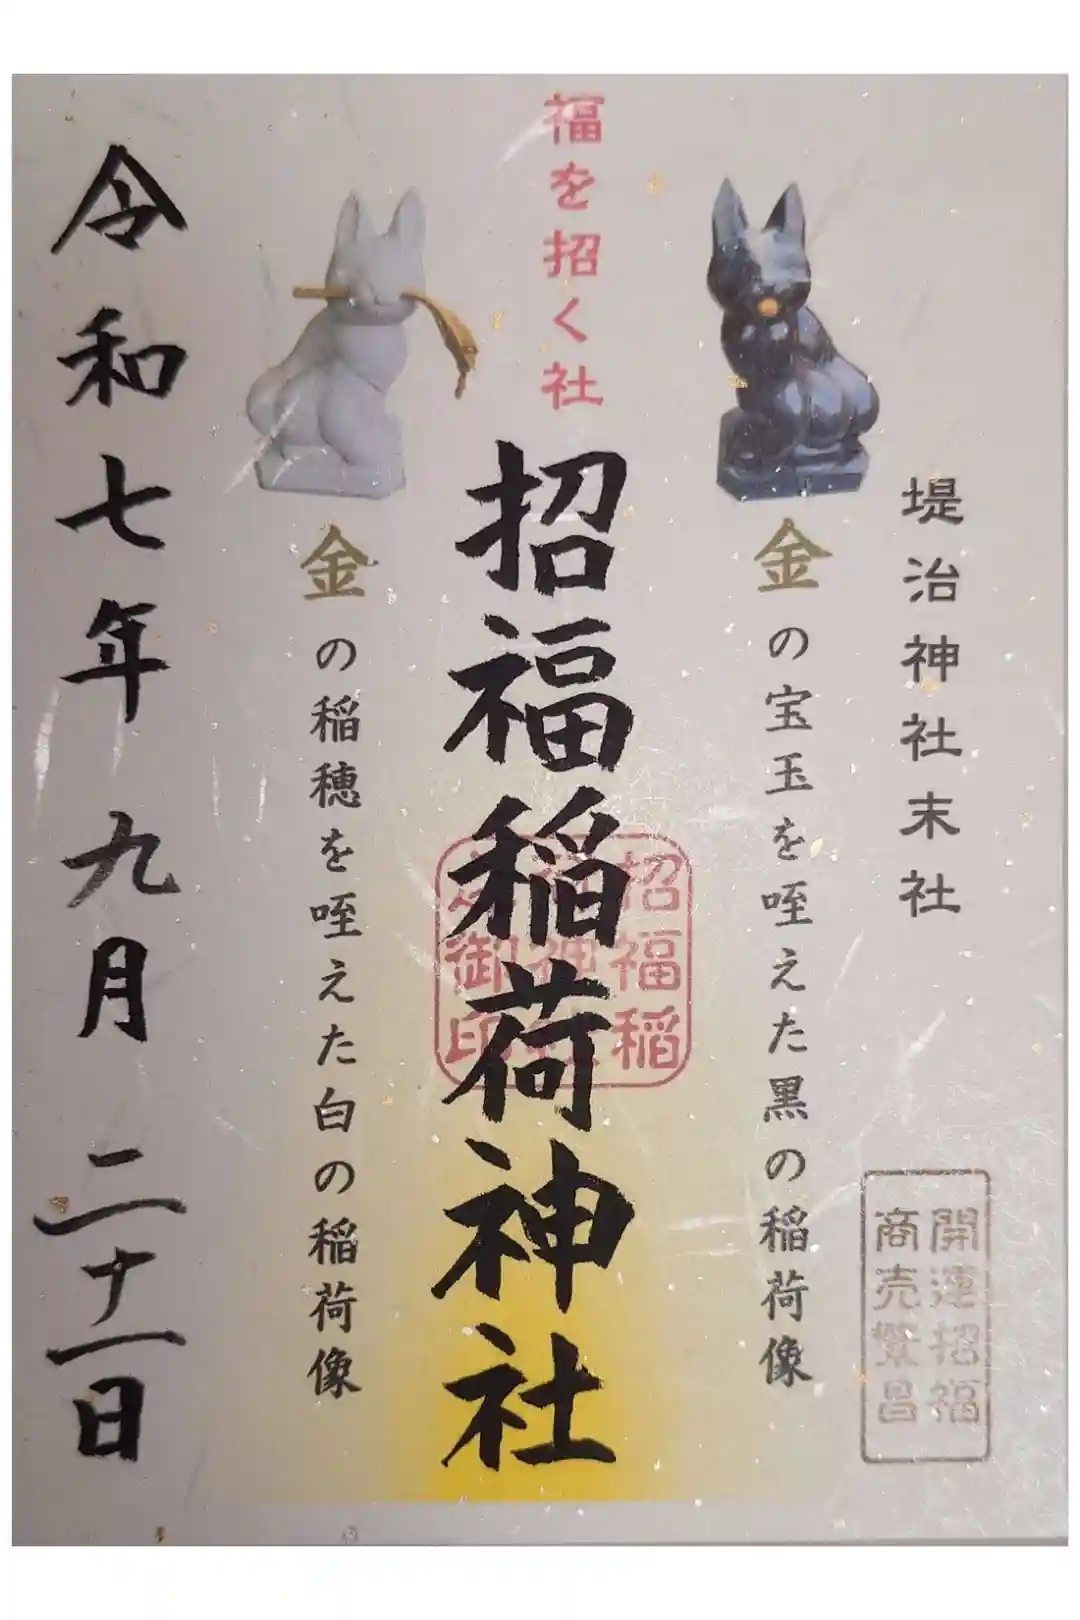 堤治神社末社
開運招福
商売繁昌
金の宝玉を咥えた黒の稲荷像
福を招く社
招福稲荷神社
招福稲
御印
金の稲穂を咥えた白の稲荷像
令和七年九月二十一日